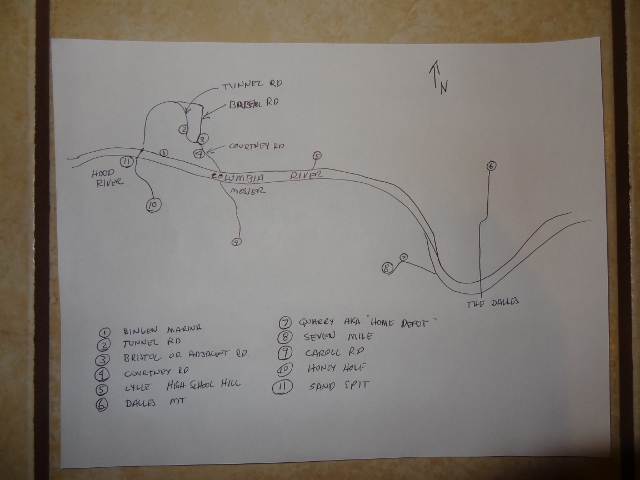 TUNNEL RD
BRISTOL RD
N
COURTNEY RD
HOOD RIVER
COLUMBIA RIVER
MOSIER
THE DALLES
11
1
2
3
4
5
6
10
9
8
7
1 BINGEN MARINA
2 TUNNEL RD
3 BRISTOL OR ADJACENT RD.
4 COURTNEY RD
5 LYLE HIGH SCHOOL HILL
6 DALLES MT
7 QUARRY AKA "HOME DEPOT"
8 SEVEN MILE
9 CAROLL RD
10 HONEY HOLE
11 SAND SPIT